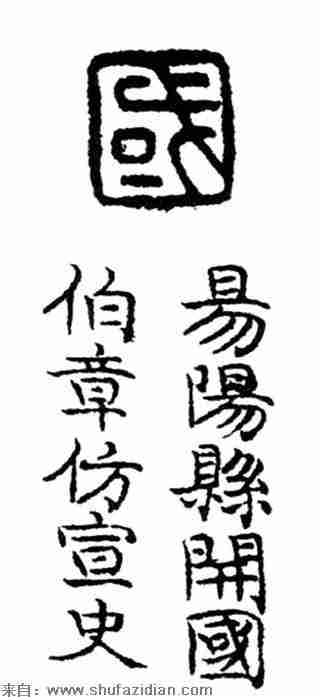 國
昜陽縣開國
伯章仿宣史
来自：www.shufazidian.com